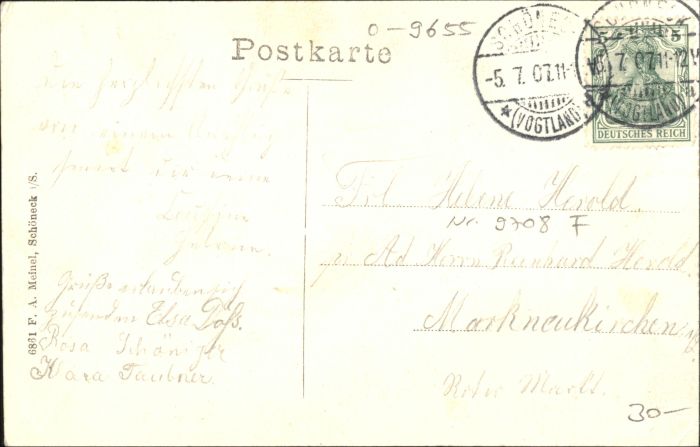 o-9655
Postkarte
SCHÖNECK
-5. 7. 07.11-12V
* (VOGTLAND)
5 5
DEUTSCHES REICH
Die herzlichsten Grüße
von einem Ausflug
sendet dir deine
Helene.
Grüße erlauben sich
zu senden Elsa Doß.
Rosa
Klara Taubner.
6861 F. A. Meinel, Schöneck i/S.
Frl Helene Herold.
Nr. 9708 F
pr Ad Herrn Reinhard Herold
Markneukirchen
Roter Markt.
30-